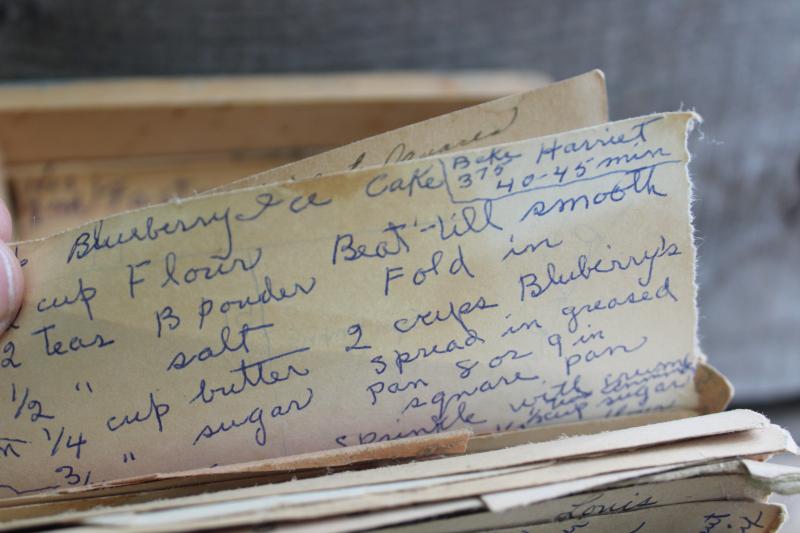 Blueberry Ice Cake
Bake Harriet
375
40-45 min
cup Flour
2 Teas B Pouder
1/2 " salt
1/4 cup butter
3/ " sugar
Beat till smooth
Fold in
2 cups Bluberry's
Spread in greased
pan 8 or 9 in
square pan
Sprinkle with crumb
cup sugar
Louis